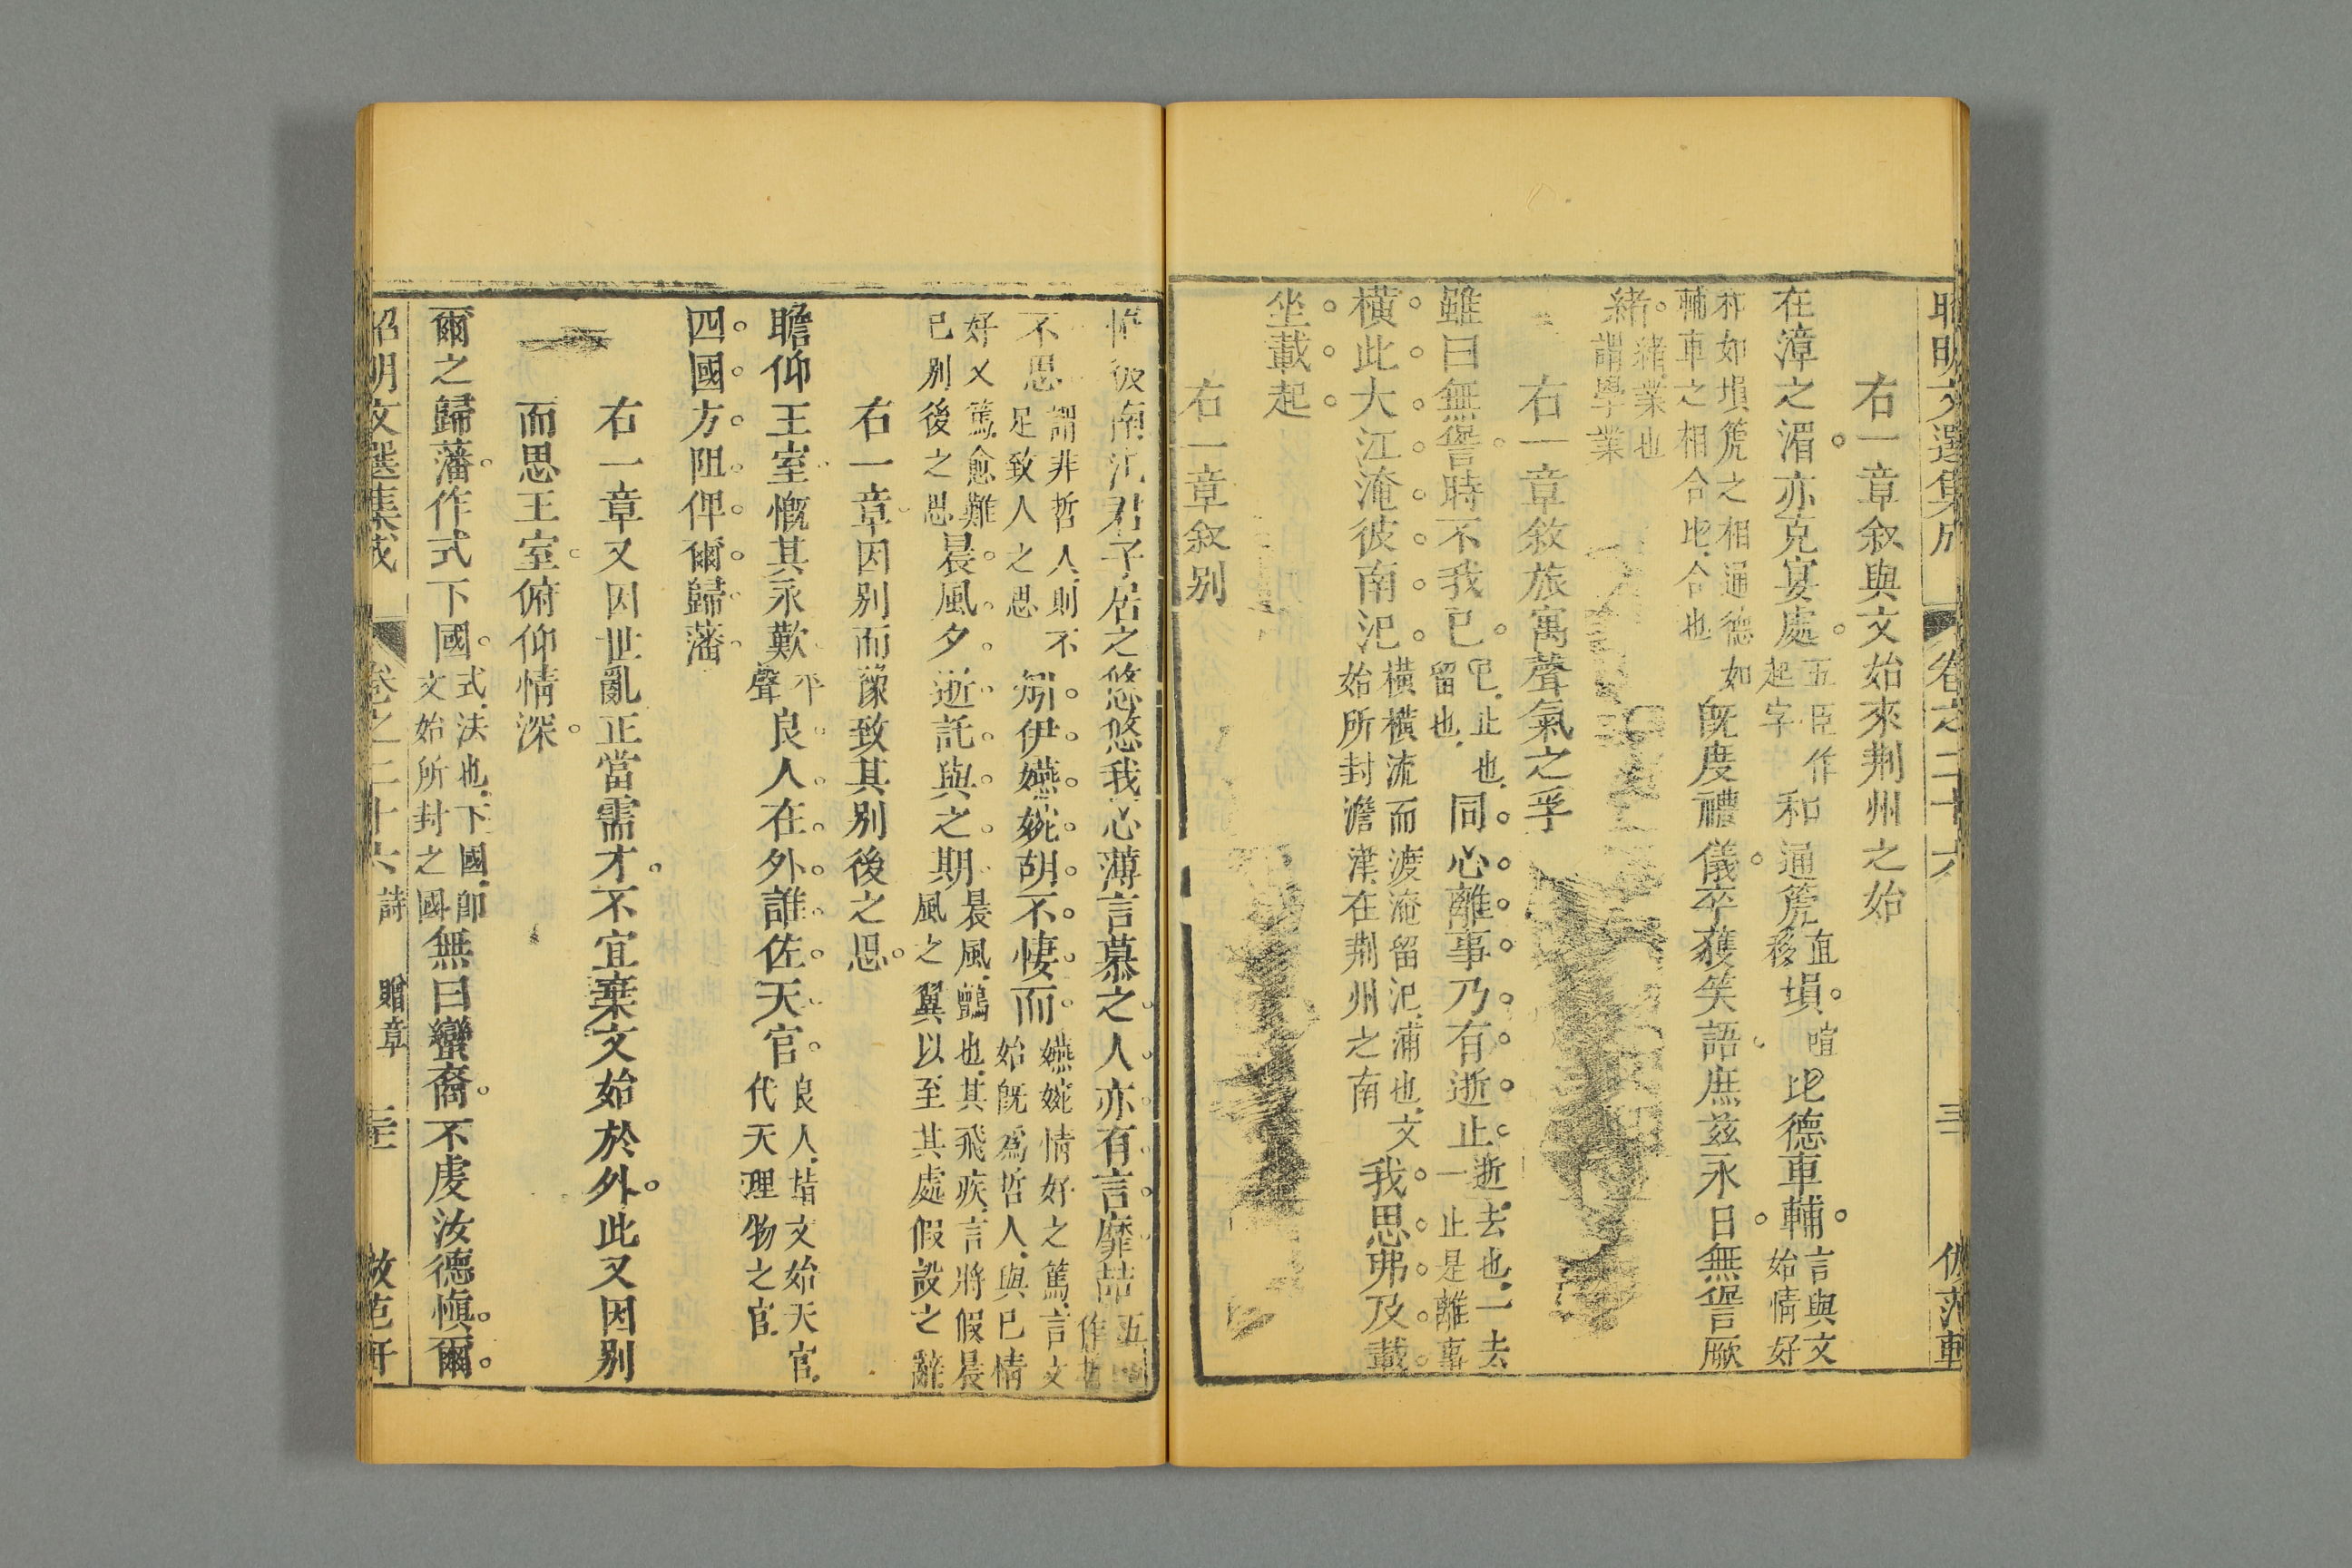 昭明文選集成 卷之二十六
右一章叙與文始來荆州之始
在漳之湄亦克宴處五臣作起字和通箎直移塤喧比德車輔言與文始情好
茻如塤箎之相通德如輔車之相合比合也既度禮儀卒獲笑語庶兹永日無諐厥
緒緒業也謂學業
右一章敘旅寓聲氣之孚
雖曰無諐時不我已已止也留也同心離事乃有逝止逝去也一去一止是離事
橫此大江淹彼南汜橫橫流而渡淹留汜浦也文始所封澹津在荆州之南我思弗及載
坐載起
右一章叙别
惟彼南汜君子居之悠悠我心薄言慕之人亦有言靡喆
不思謂非哲人則不足致人之思矧伊嬿婉胡不悽而嬿婉情好之篤言文始旣爲哲人與已情
好又篤愈難已别後之思晨風夕逝託與之期晨風鸇也其飛疾言將假晨風之翼以至其處假設之辭
右一章因别而豫致其别後之思
瞻仰王室慨其永歎平聲良人在外誰佐天官良人皆文始天官代天理物之官
四國方阻俾爾歸藩
右一章又因世亂正當需才不宜棄文始於外此又因别
而思王室俯仰情深
爾之歸藩作式下國式法也下國卽文始所封之國無曰蠻裔不虔汝德愼爾
昭明文選集成 卷之二十六 詩 贈章